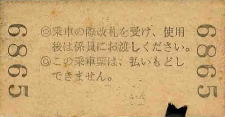 6865
◎乗車の際改札を受け、使用
後は係員にお渡しください。
◎この乗車票は、払いもどし
できません。
6865